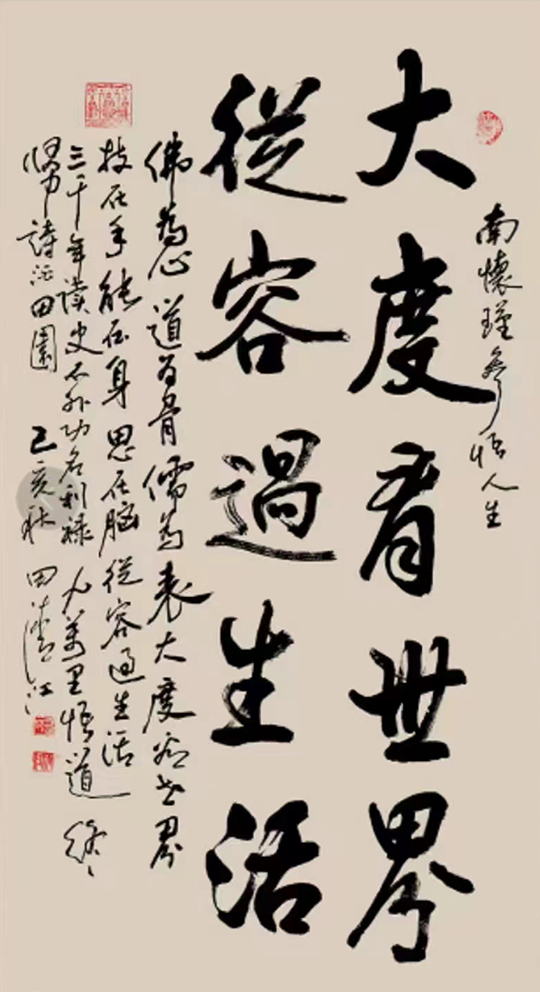 南懷瑾參悟人生
大度看世界
從容過生活
佛為心 道為骨 儒為表 大度看世界
技在手 能在身 思在脑 從容過生活
三千年读史不外功名利禄 九萬里悟道 終
歸詩酒田園 己亥秋 田清江